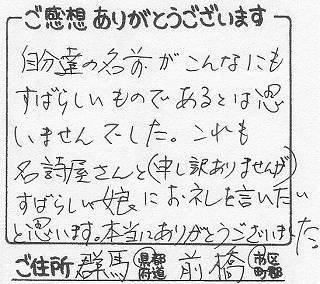 ご感想ありがとうございます
自分達の名前がこんなにも
すばらしいものであるとは思
いませんでした。これも
名詩屋さんと(申し訳ありませんが)
すばらしい娘にお礼を言いたい
と思います。本当にありがとうございました。
ご住所 群馬 都道府県 前橋 市区町郡